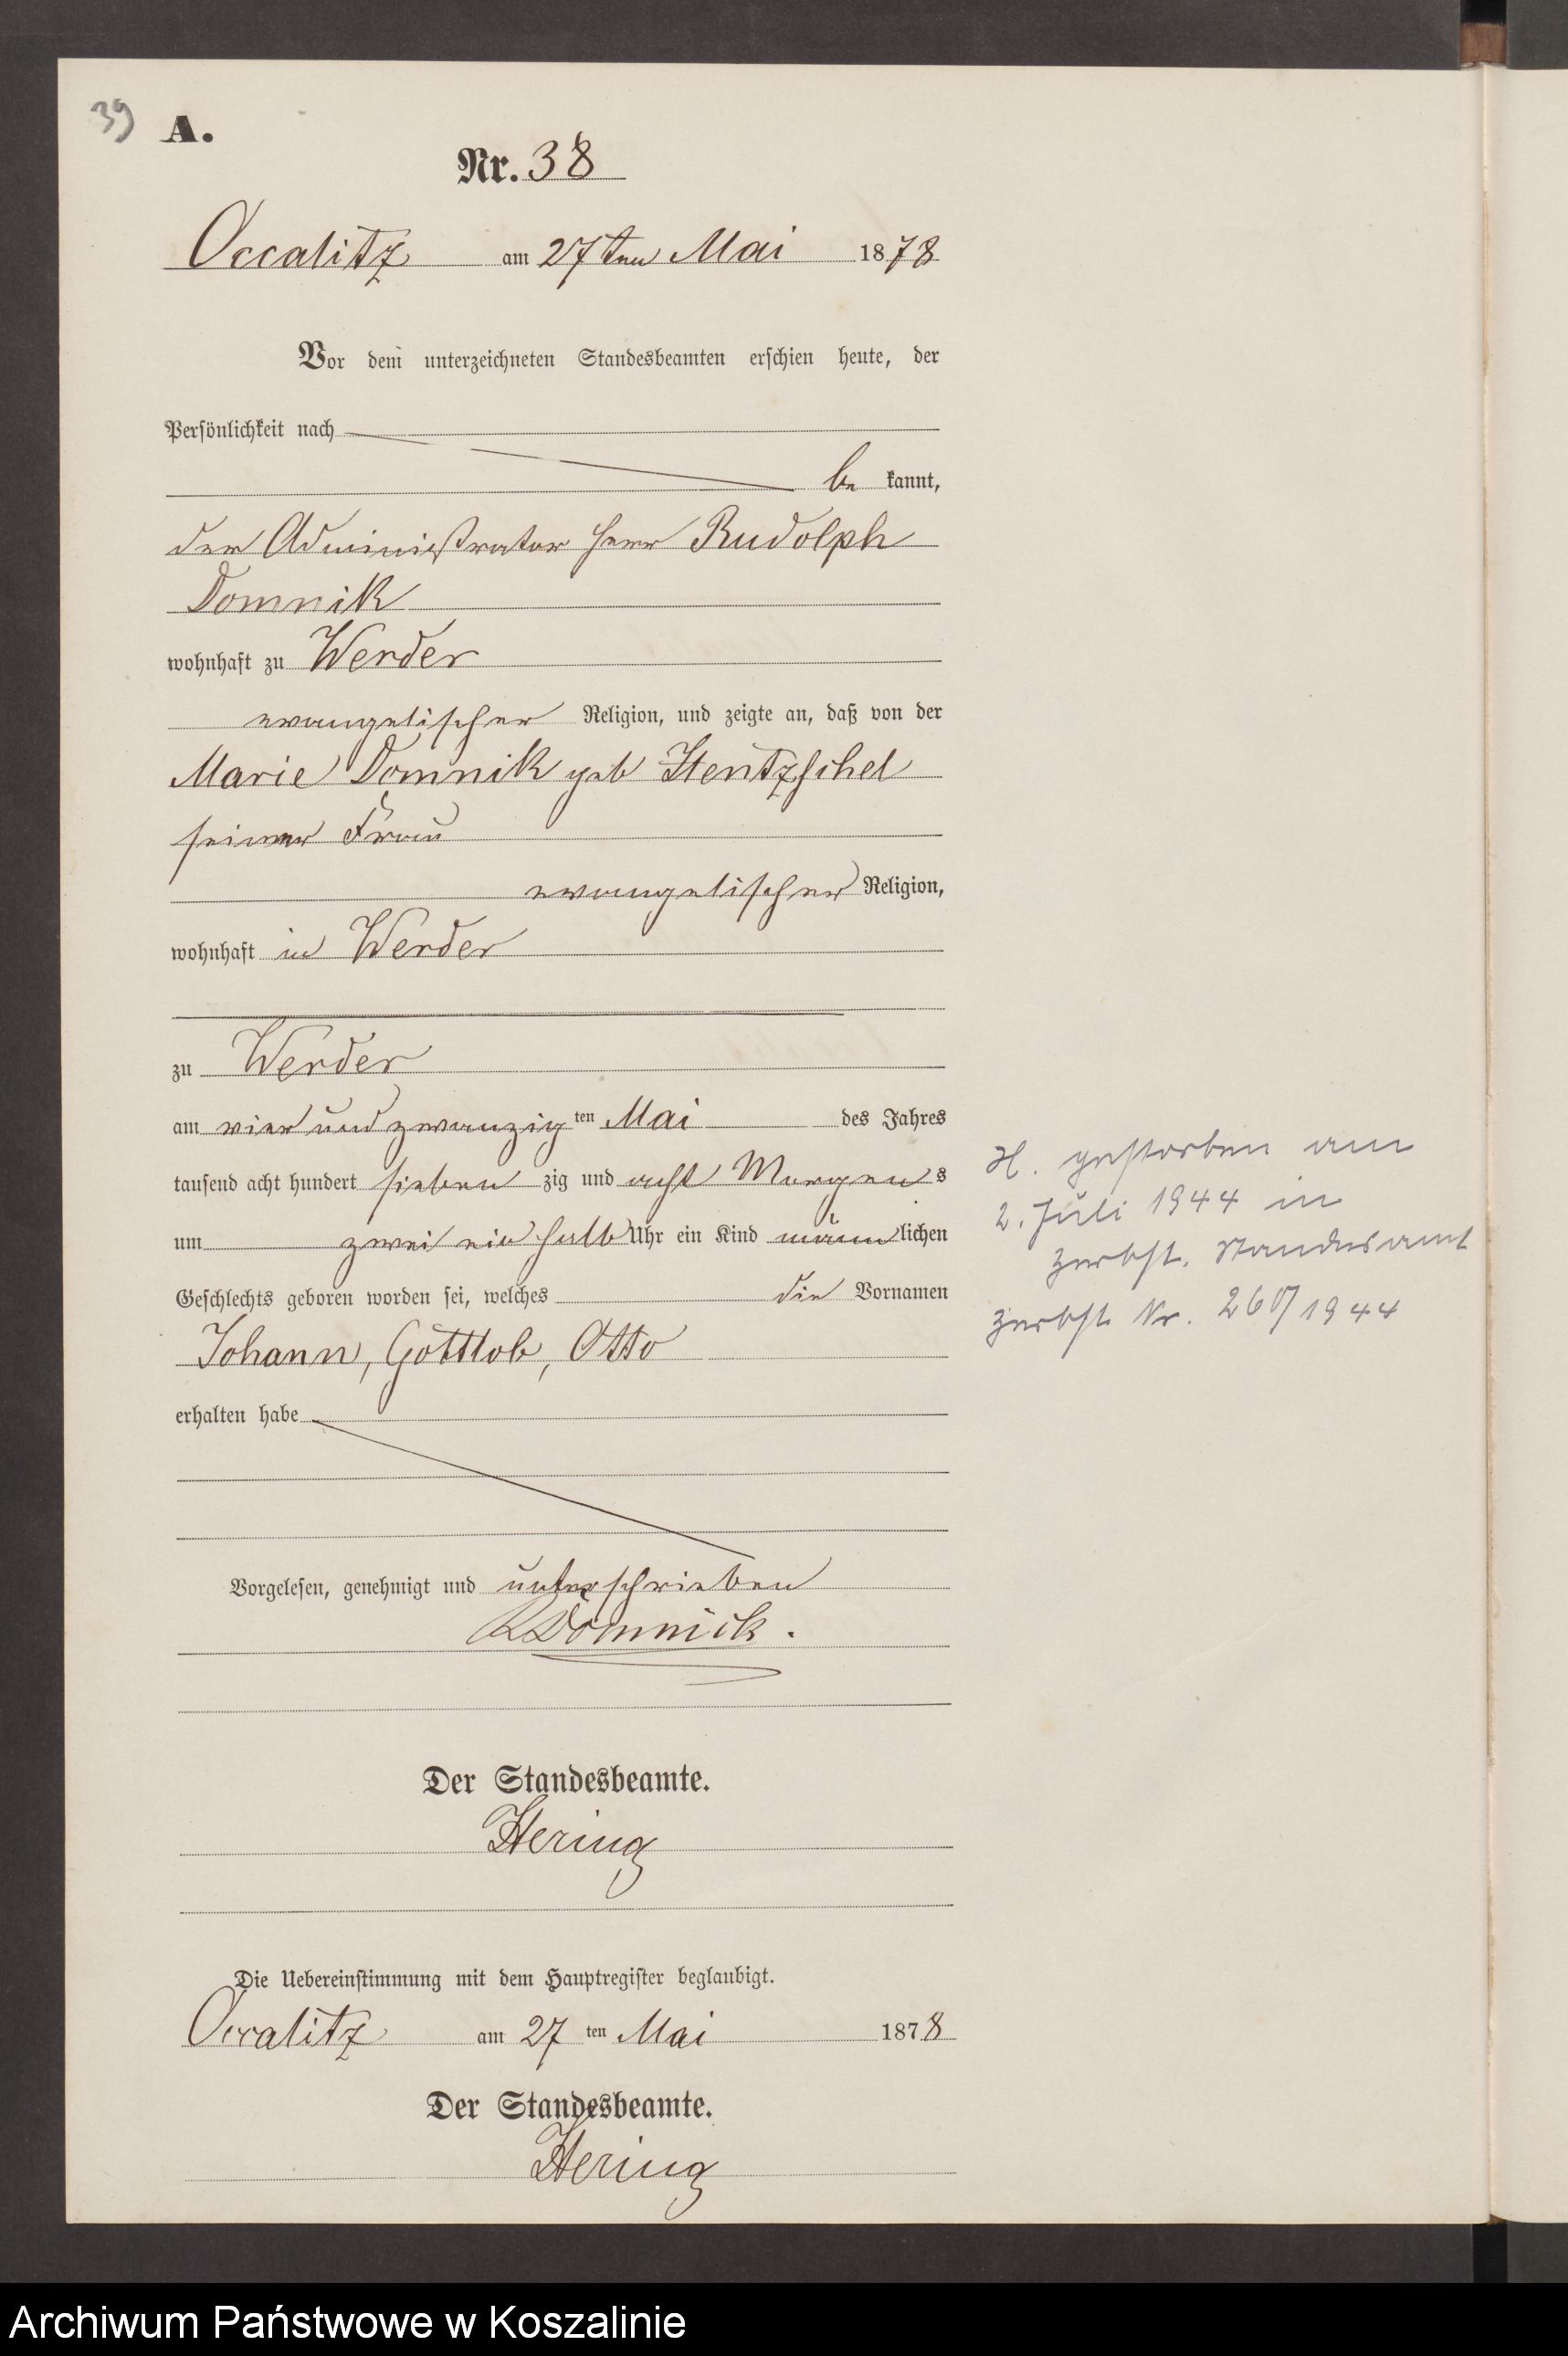 39 A.
Nr. 38
Occalitz am 27ten Mai 1878
Vor dem unterzeichneten Standesbeamten erschien heute, der
Persönlichkeit nach
be kannt,
der Administrator Herr Rudolph
Domnik
wohnhaft zu Werder
evangelischer Religion, und zeigte an, daß von der
Marie Domnik geb Hentzschel
seiner Frau
evangelischer Religion,
wohnhaft in Werder
zu Werder
am vier und zwanzig ten Mai des Jahres
tausend acht hundert sieben zig und acht Morgens
um zwei ein halb Uhr ein Kind männlichen
Geschlechts geboren worden sei, welches die Vornamen
Johann, Gottlob, Otto
erhalten habe
Vorgelesen, genehmigt und unterschrieben
R Domnick.
Der Standesbeamte.
Hering
Die Uebereinstimmung mit dem Hauptregister beglaubigt.
Occalitz am 27 ten Mai 1878
Der Standesbeamte.
Hering
H. gestorben am
2. Juli 1944 in
Zerbst. Standesamt
Zerbst Nr. /1944
Archiwum Państwowe w Koszalinie